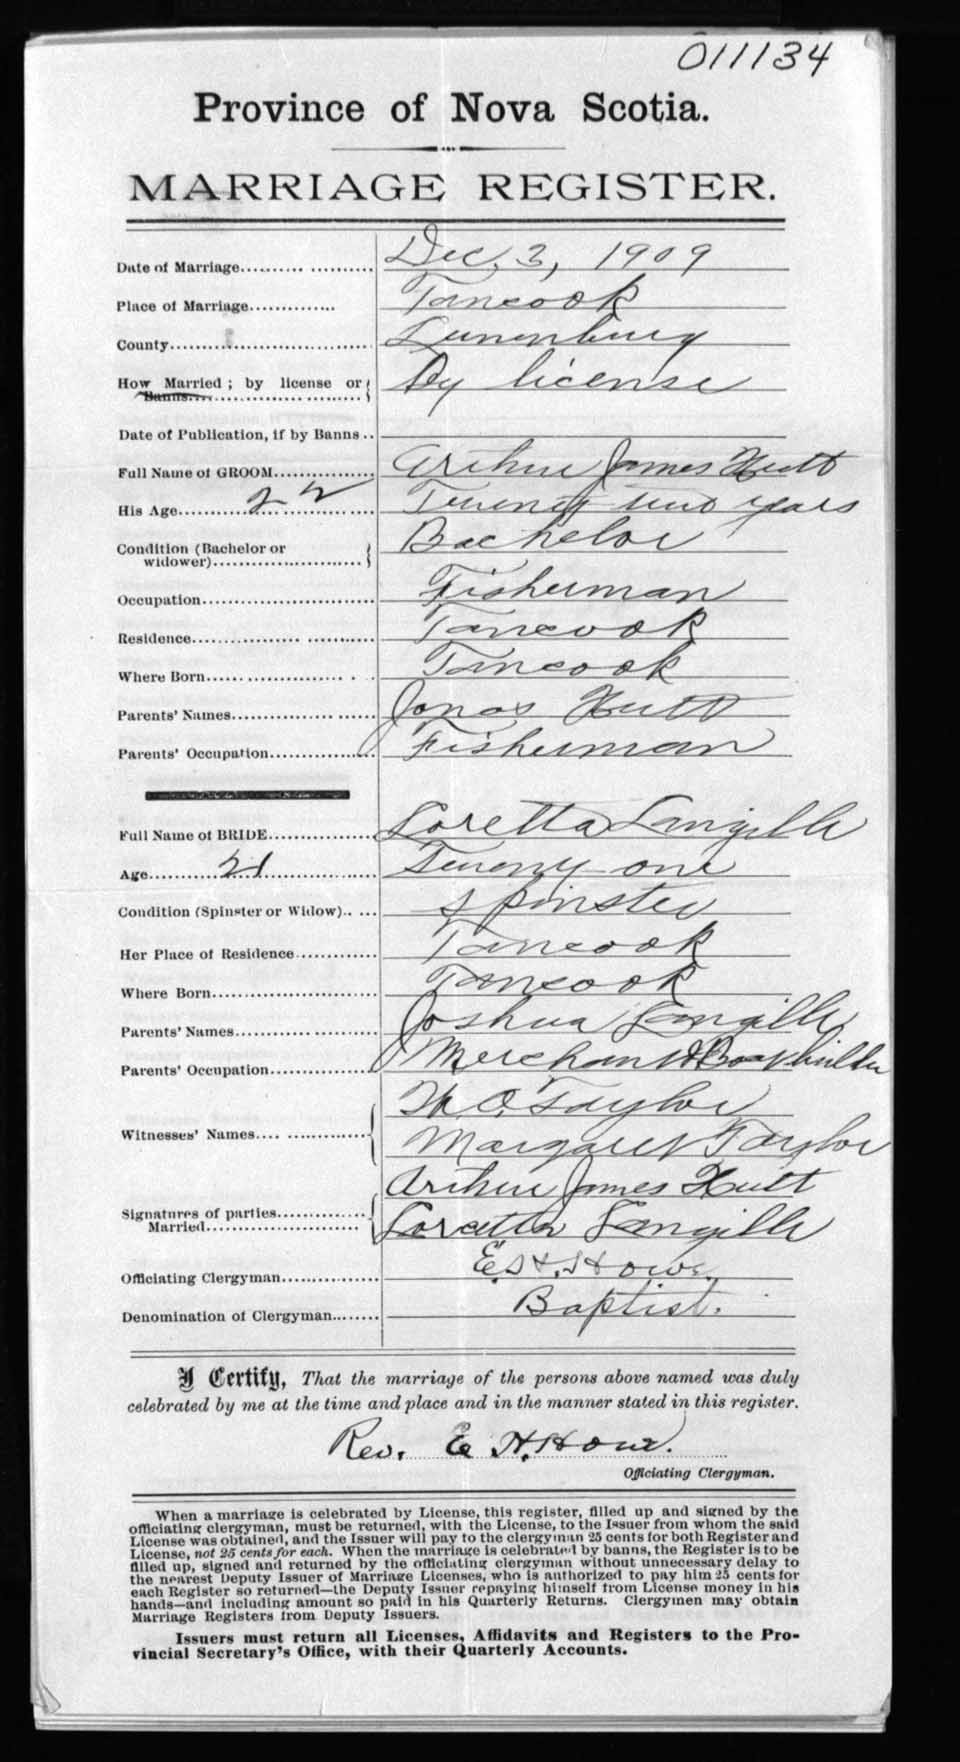 011134
Province of Nova Scotia.
MARRIAGE REGISTER.
Date of Marriage.......... ........... Dec, 3, 1909
Place of Marriage............. Tancook
County................................ Lunenburg
How Married ; by license or By license
Banns.... ............... .........
Date of Publication, if by Banns ..
Full Name of GROOM............... Arthur James Hutt
His Age............................ 22 Twenty two years
Condition (Bachelor or Bachelor
widower)..........................
Occupation............................ Fisherman
Residence................. ........... Tancook
Where Born...... ................. . . Tancook
Parents' Names................. ...... Jonas Hutt
Parents' Occupation................. Fisherman
Full Name of BRIDE................. Loretta Langille
Age.................................... 21 Twenty one
Condition (Spinster or Widow).. ... Spinster
Her Place of Residence............. Tancook
Where Born........................... Tancook
Parents' Names............. ......... Joshua Langille
Parents' Occupation................. Merchant & Boat builder
Witnesses' Names.... ............... Taylor
Margaret Taylor
Arthur James Hutt
Signatures of parties...............
Married......................... Loretta Langille
Officiating Clergyman............... E. H. Howe
Denomination of Clergyman........ Baptist.
I Certify, That the marriage of the persons above named was duly
celebrated by me at the time and place and in the manner stated in this register.
Rev. E. H. Howe.
Officiating Clergyman.
When a marriage is celebrated by License, this register, filled up and signed by the
officiating clergyman, must be returned, with the License, to the Issuer from whom the said
License was obtained, and the Issuer will pay to the clergyman 25 cents for both Register and
License, not 25 cents for each. When the marriage is celebrated by banns, the Register is to be
filled up, signed and returned by the officiating clergyman without unnecessary delay to
the nearest Deputy Issuer of Marriage Licenses, who is authorized to pay him 25 cents for
each Register so returned—the Deputy Issuer repaying himself from License money in his
hands—and including amount so paid in his Quarterly Returns. Clergymen may obtain
Marriage Registers from Deputy Issuers.
Issuers must return all Licenses, Affidavits and Registers to the Pro-
vincial Secretary's Office, with their Quarterly Accounts.